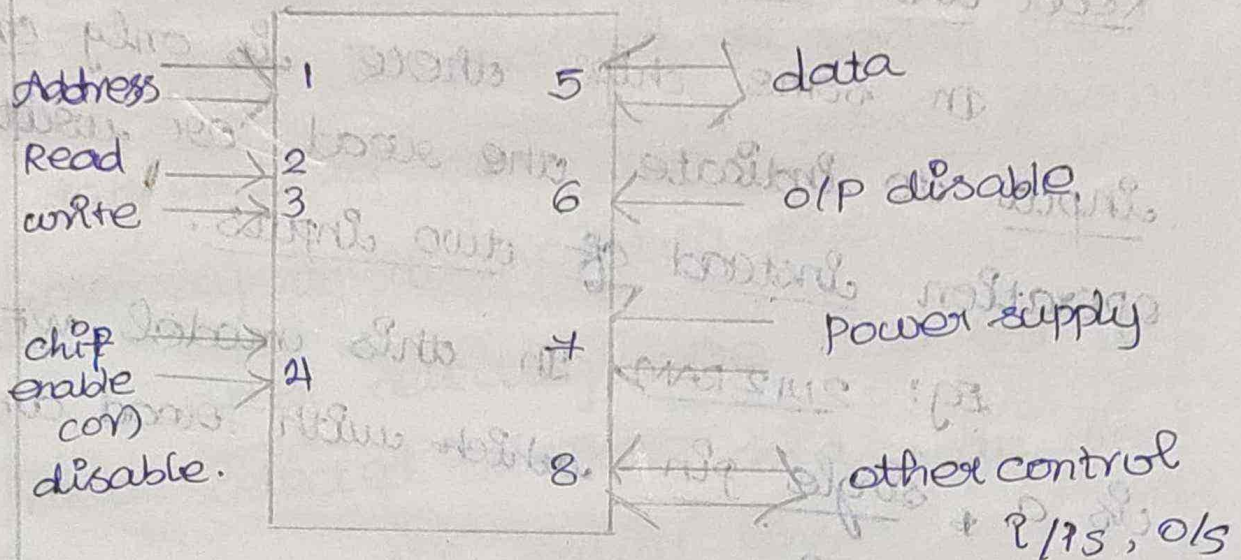 Address
Read
write
chip
enable
(or)
disable.
1
2
3
4
5
6
7
8.
data
o/p disable.
power supply
other control
i/ps, o/s